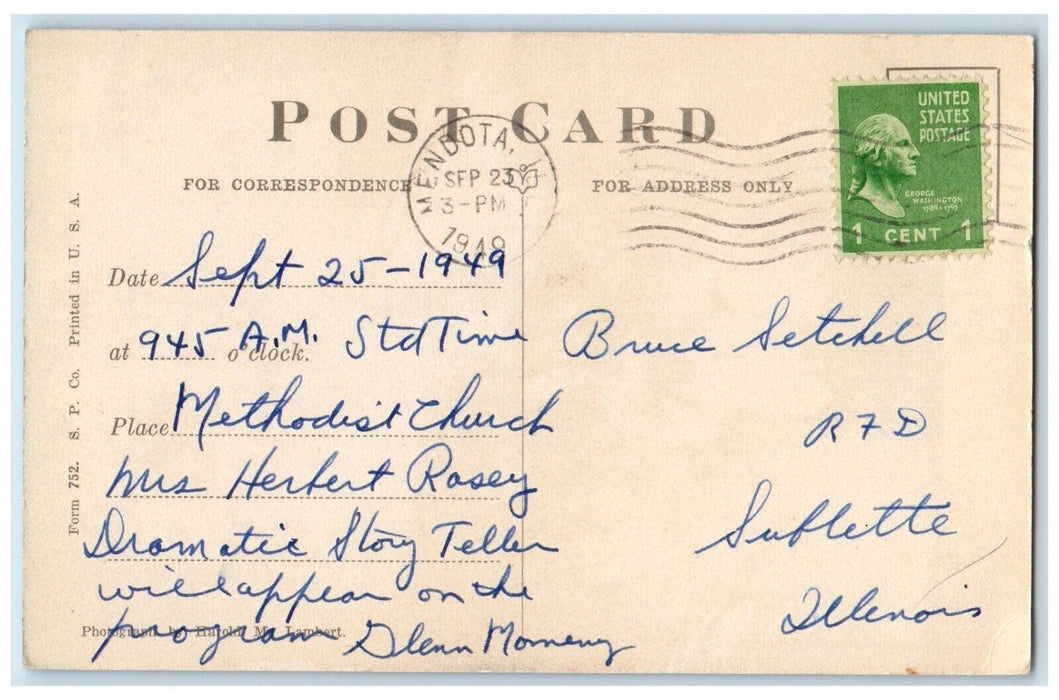 POST CARD
FOR CORRESPONDENCE
FOR ADDRESS ONLY
MENDOTA,
SEP 23
3-PM
1949
UNITED
STATES
POSTAGE
GEORGE
WASHINGTON
1789-1797
1 CENT 1
Form 752. S. P. Co. Printed in U. S. A.
Date Sept 25-1949
at 945 A.M. o'clock. Std Time
Place Methodist Church
Mrs Herbert Rosey
Dramatic Story Teller
will appear on the
program Glenn
Photograph by Harold M. Lambert.
Bruce Setchell
R F D
Sublette
Illinois